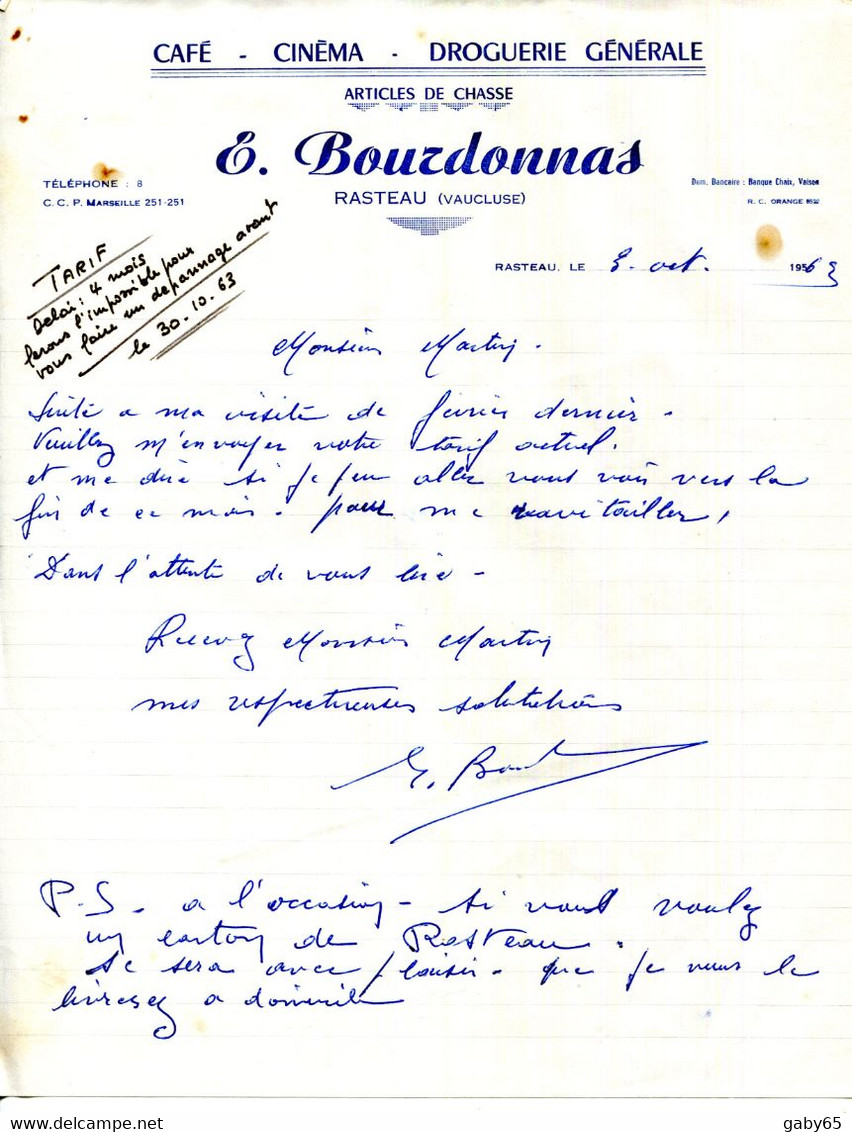 CAFÉ - CINÈMA - DROGUERIE GÉNÉRALE
ARTICLES DE CHASSE
E. Bourdonnas
RASTEAU (VAUCLUSE)
TÉLÉPHONE : 8
C. C. P. MARSEILLE 251-251
Dom. Bancaire : Banque Chaix, Vaison
R. C. ORANGE
TARIF
Délai : 4 mois
ferons l'impossible pour
vous faire un dépannage avant
le 30.10.63
RASTEAU, LE 8. oct. 1963
Monsieur Martin.
Suite a ma visite de février dernier.
Veuillez m'envoyer votre tarif actuel.
et me dire si je peu aller vous voir vers la
fin de ce mois. pour me ravitailler,
Dans l'attente de vous lire -
Recevez Monsieur Martin
mes respectueuses salutations
E. Bourd
P.S. a l'occasion - si vous voulez
un carton de Rasteau.
se sera avec plaisir - que je vous le
livrerez a domicile
gaby65